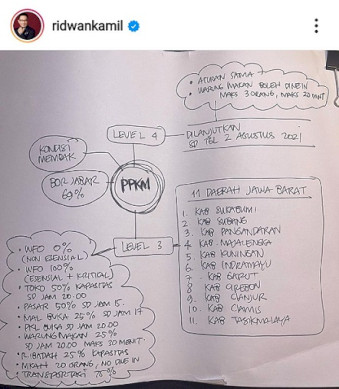 ridwankamil
• ATURAN SAMA
• WARUNG MAKAN BOLEH DINEIN
MAKS 3 ORANG, MAKS 20 MNT
LEVEL 4
DILANJUTKAN
SD TGL 2 AGUSTUS 2021
KONDISI
MEMBAIK
BOR JABAR
69%
PPKM
LEVEL 3
11 DAERAH JAWA BARAT
1. KAB SUKABUMI
2. KAB SUBANG
3. KAB PANGANDARAN
4. KAB MAJALENGKA
5. KAB KUNINGAN
6. KAB INDRAMAYU
7. KAB GARUT
8. KAB CIREBON
9. KAB CIANJUR
10. KAB CIAMIS
11. KAB TASIKMALAYA
• WFO 0%
(NON ESENSIAL)
• WFO 100%
(ESENSIAL + KRITIKAL)
• TOKO 50% KAPASITAS
SD JAM 20.00
• PASAR 50% SD JAM 15.
• MAL BUKA 25% SD JAM 17
• PKL BUKA SD JAM 20.00
• WARUNG MAKAN 25%
SD JAM 20.00 MAKS 30 MENIT
• R. IBADAH 25% KAPASITAS
• NIKAH 20 ORANG, NO DINE IN
• TRANSPORTASI 70%